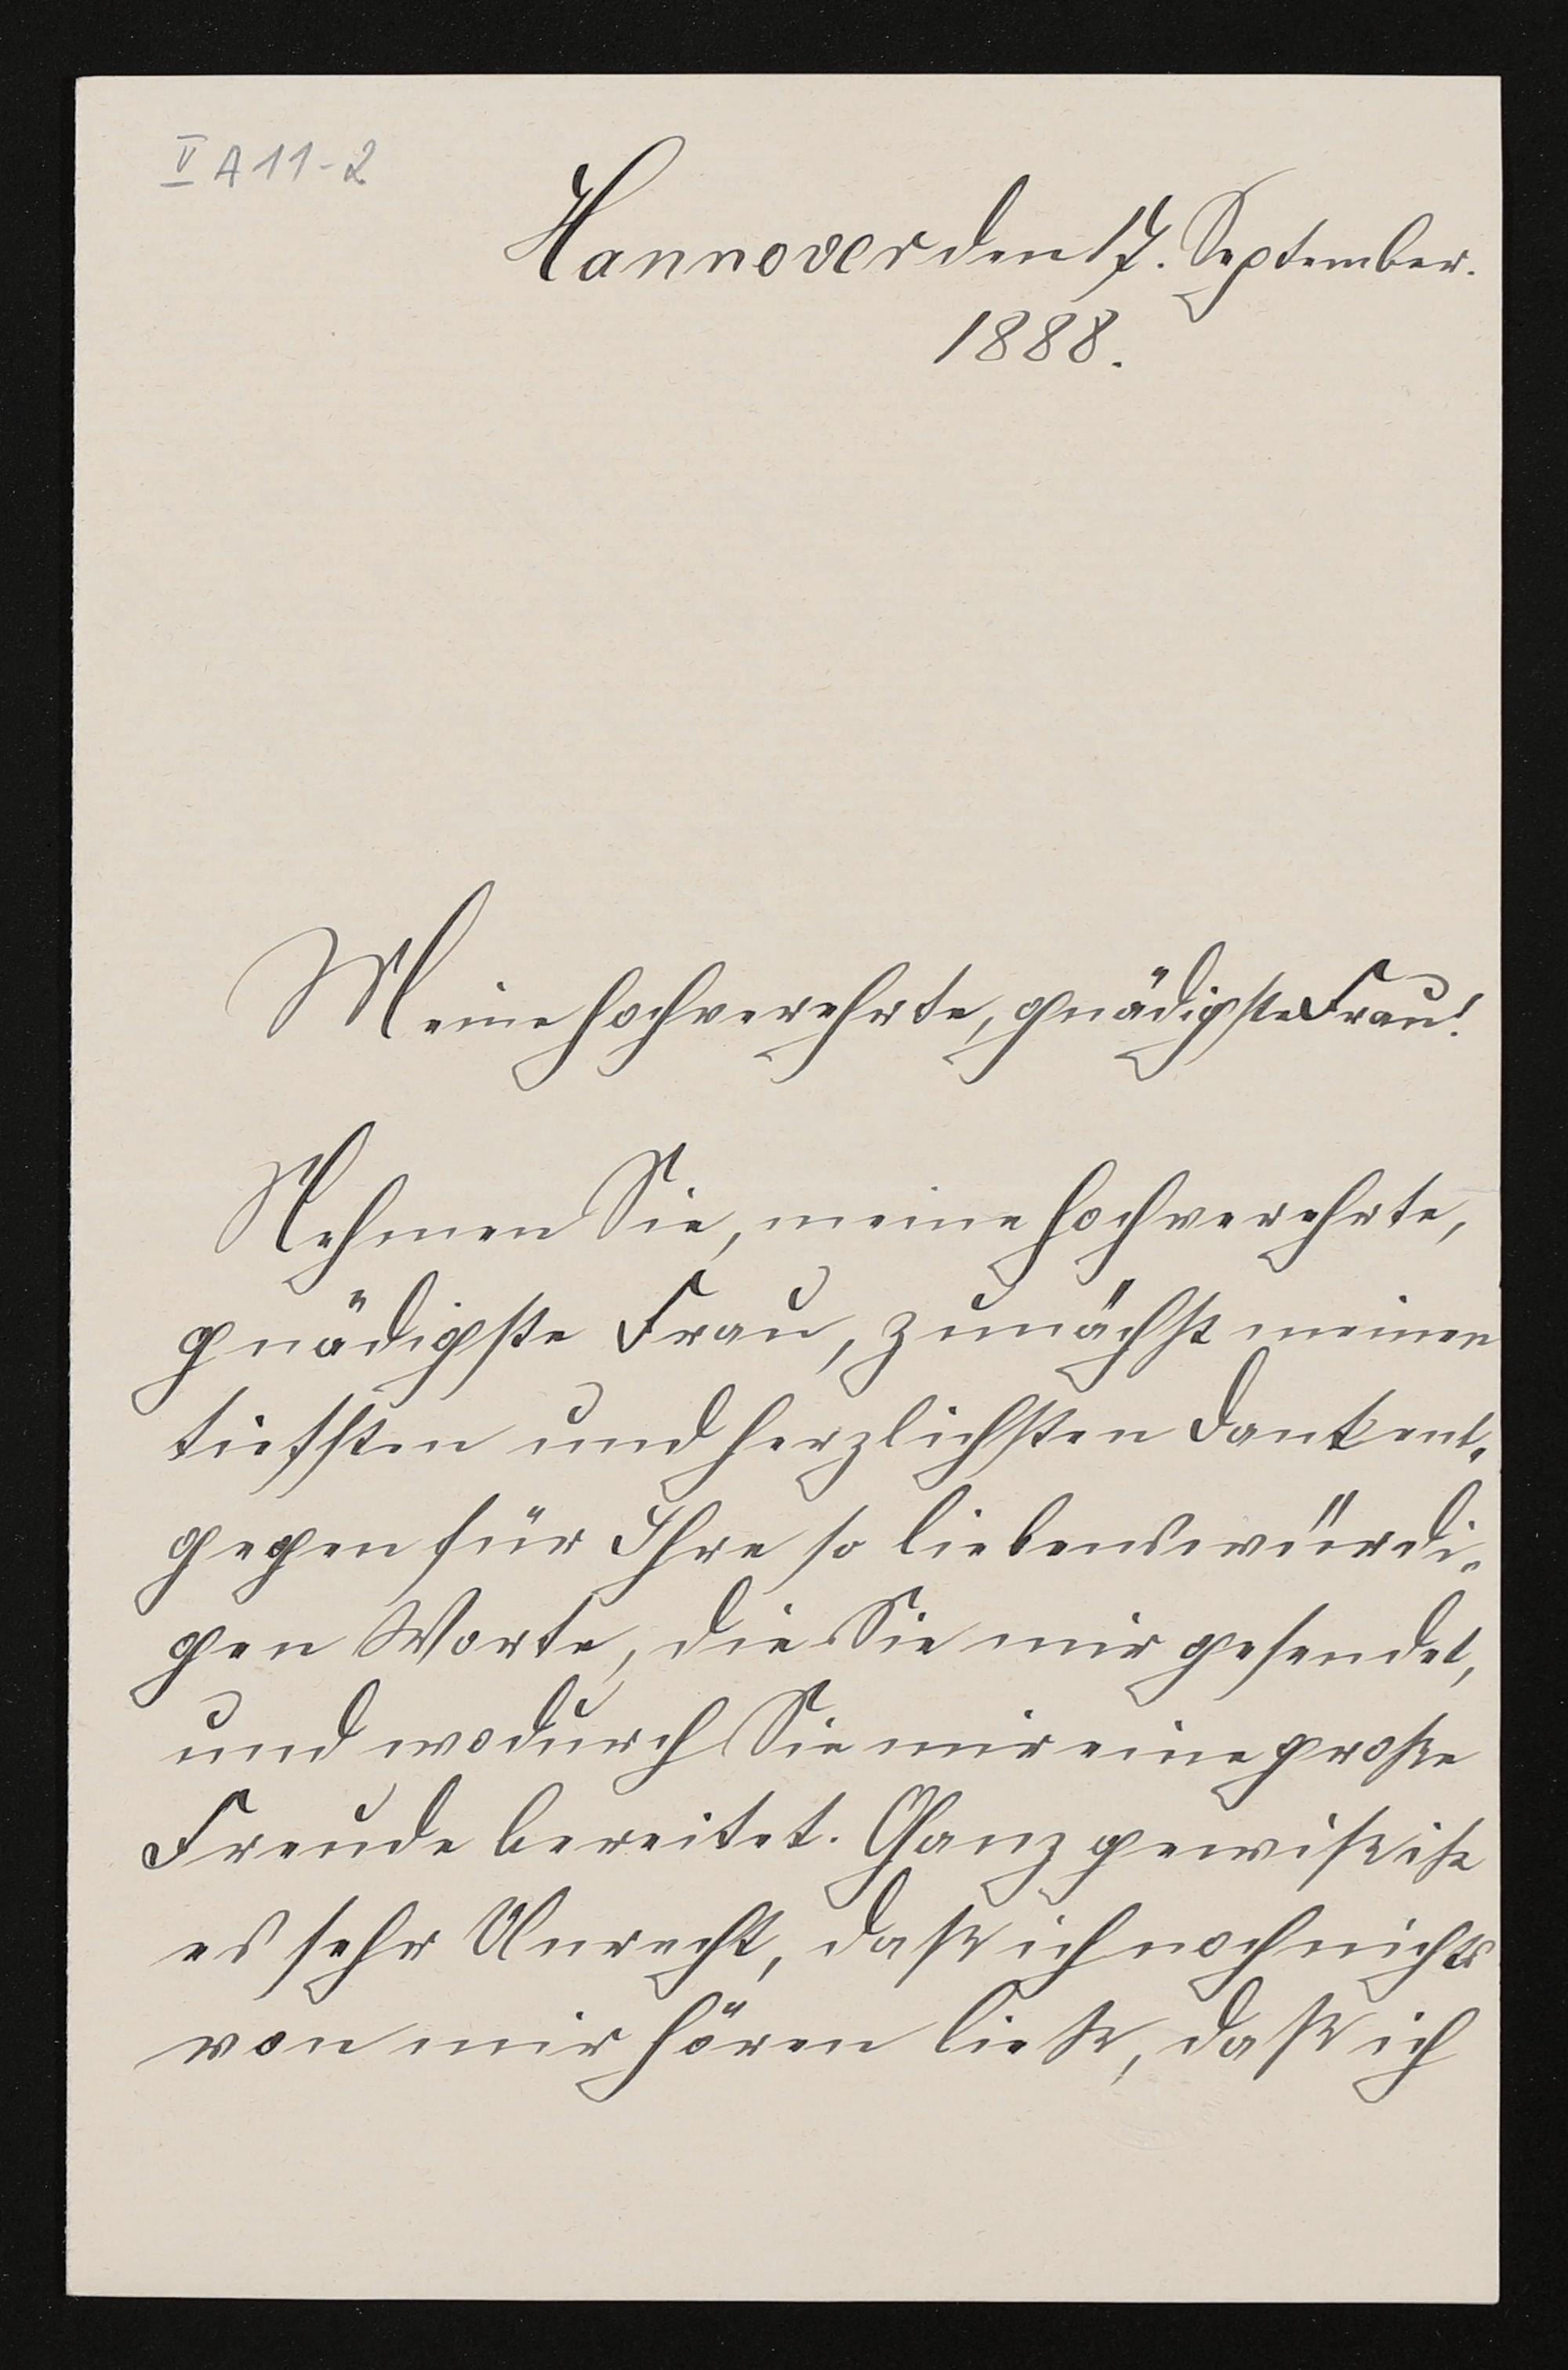 V A 11-2
Hannover den 17. September.
1888.
Meine hochverehrte, gnädigste Frau!
Nehmen Sie, meine hochverehrte,
gnädigste Frau, zunächst meinen
tiefsten und herzlichsten Dank ent-
gegen für Ihre so liebenswürdi-
gen Worte, die Sie mir gesendet,
und wodurch Sie mir eine große
Freude bereitet. Ganz gewiß ist
es sehr Unrecht, daß ich noch nichts
von mir hören ließ, daß ich